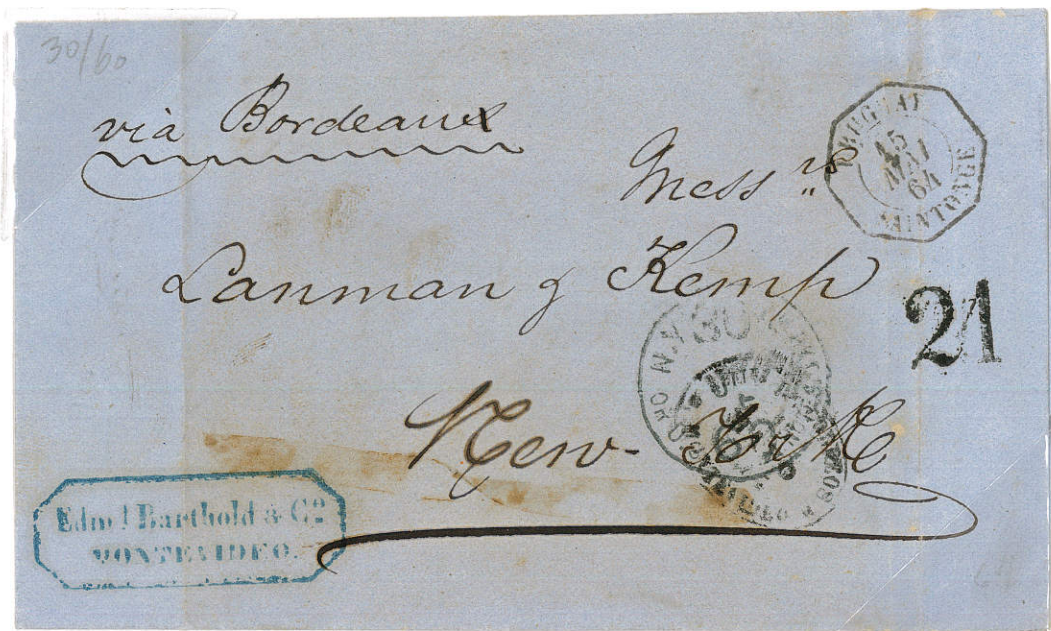 30/60
via Bordeaux
URUGUAY
15
MAI
64
SAINTONGE
Mess rs
Lanman & Kemp
21
N.Y.
30
New-York
Edmd Barthold & Co
MONTEVIDEO.